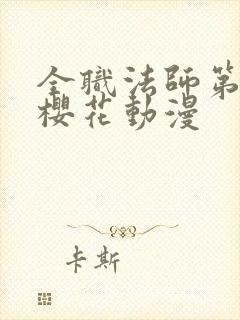 全職法師第
櫻花動漫
卡斯